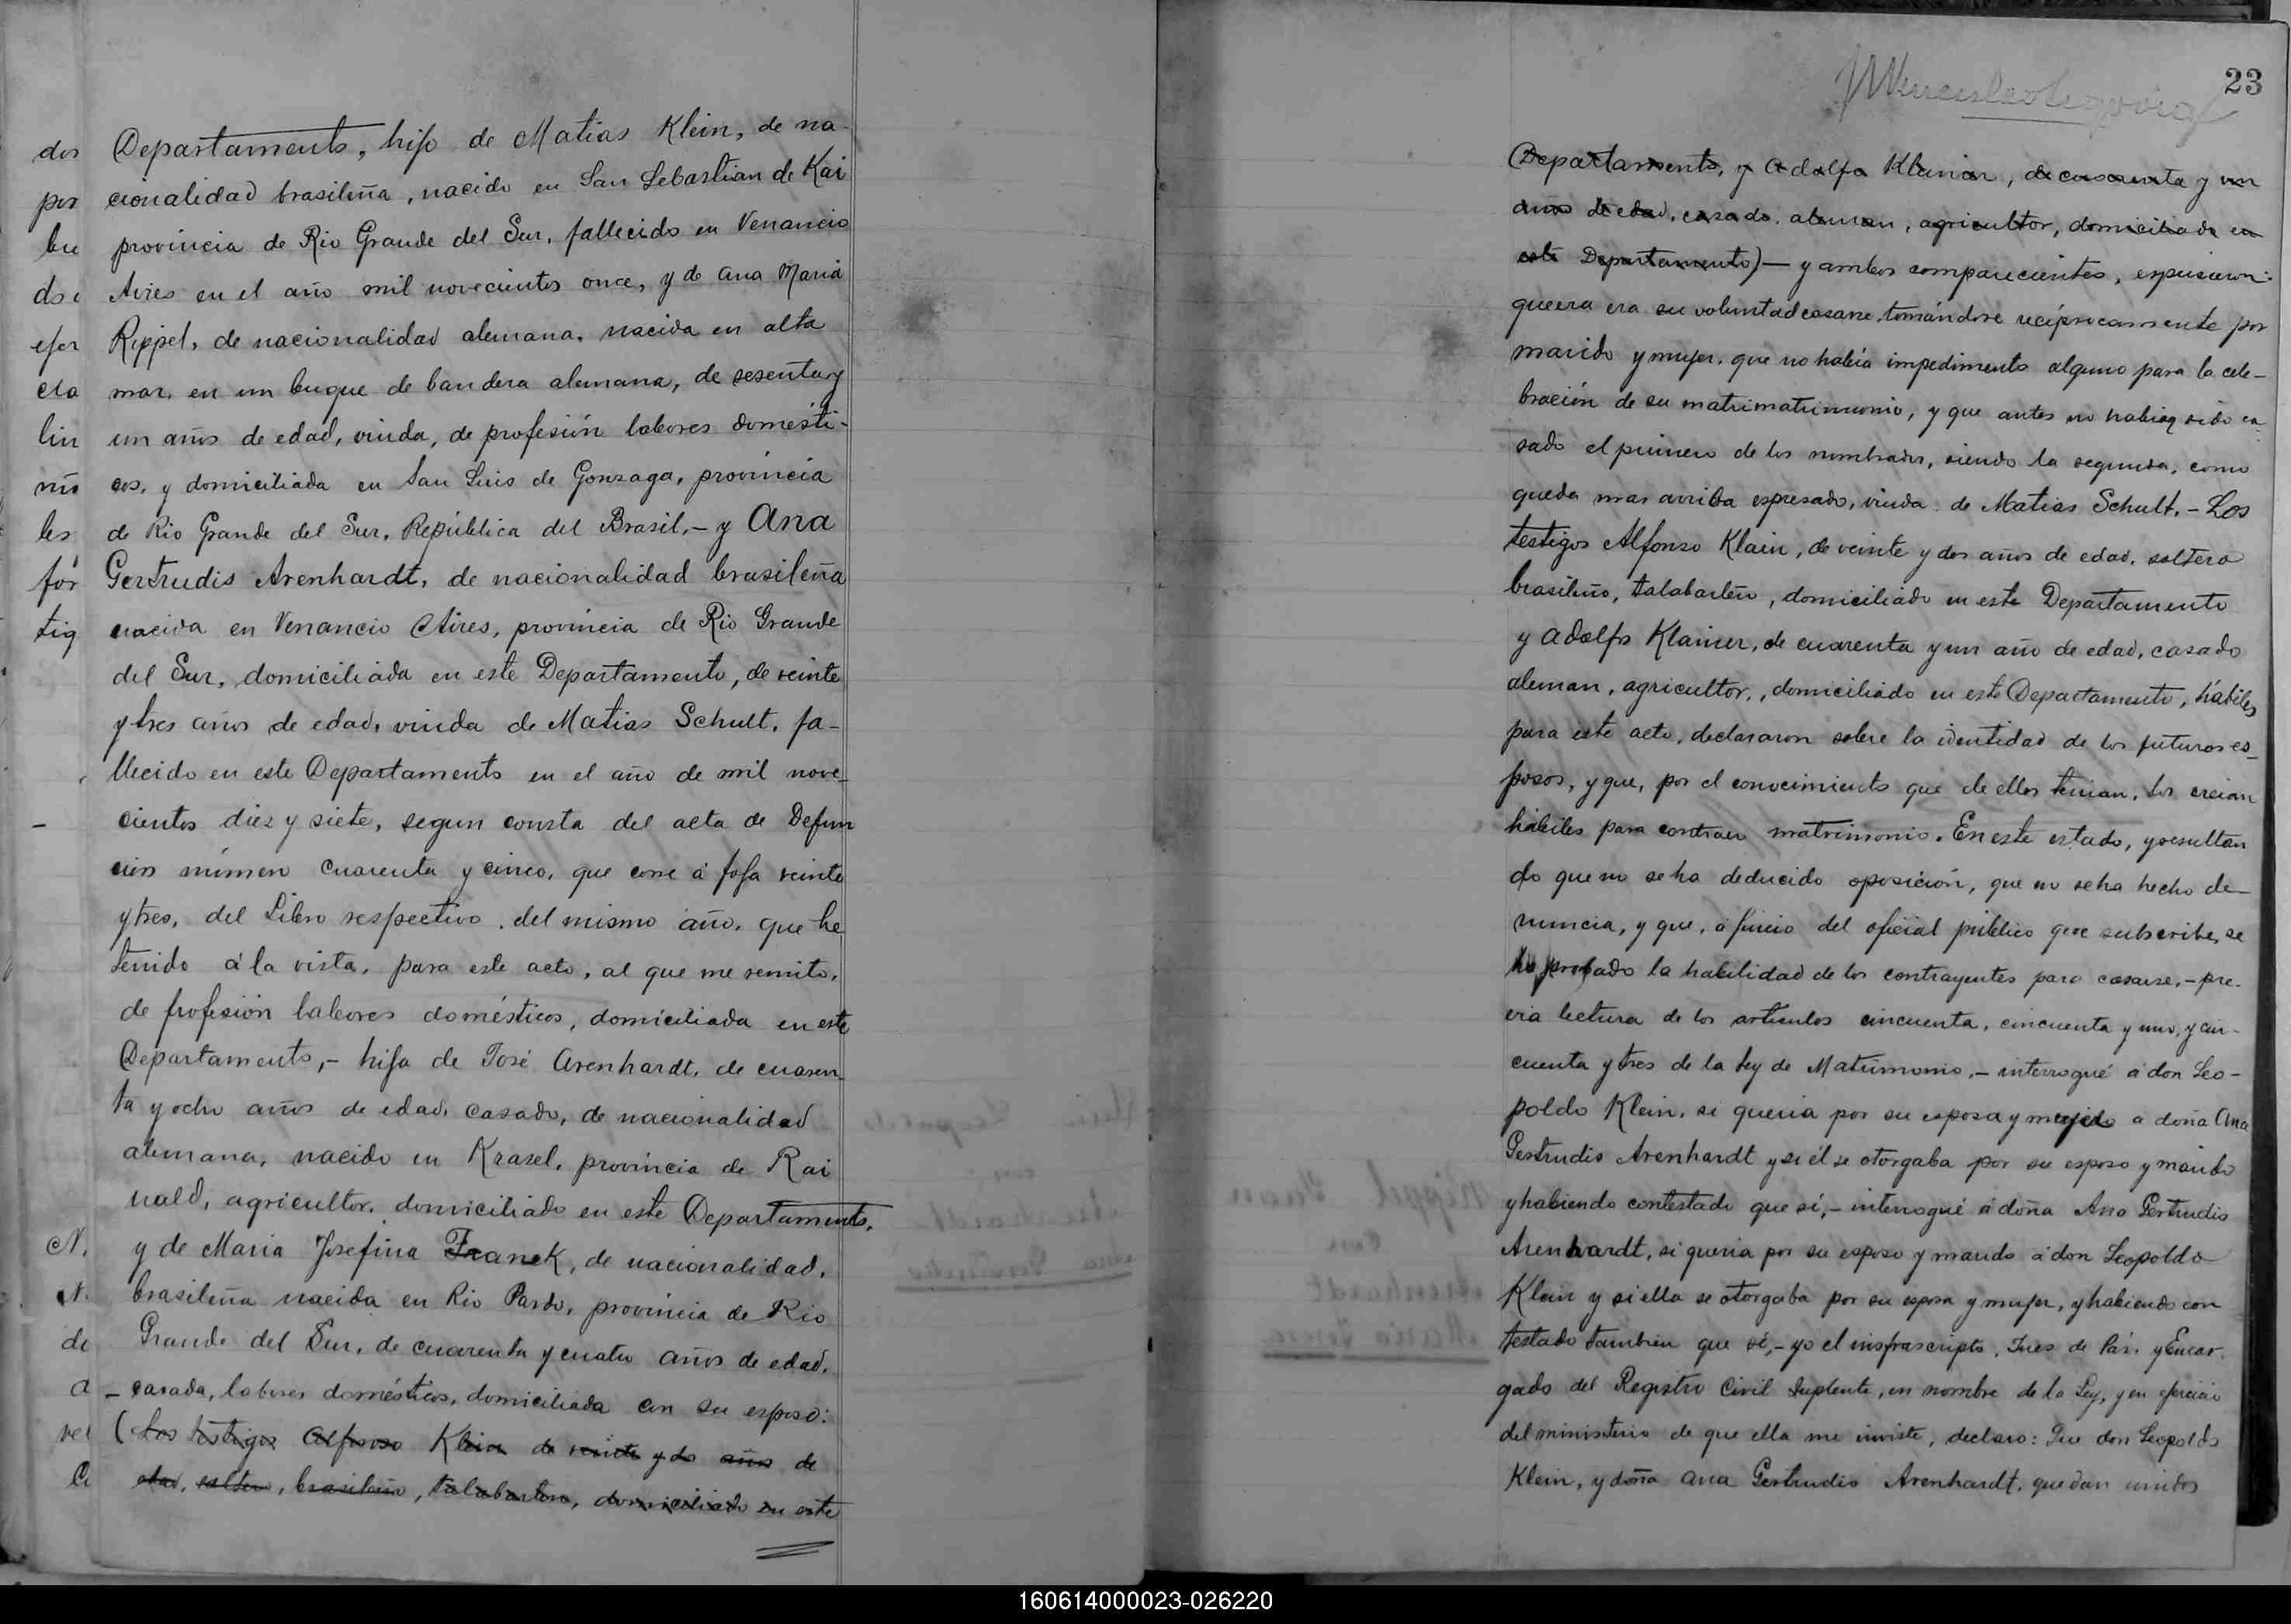 dos
por
bu
do e
efer
cia
lin
nú
les
for
tig
N.
N.
de
a
vel
Departamento, hijo de Matias Klein, de na-
cionalidad brasileña, nacido en San Sebastian de Kai
provincia de Rio Grande del Sur, fallecido en Venancio
Aires en el año mil novecientos once, y de Ana Maria
Rippel, de nacionalidad alemana, nacida en alta
mar, en un buque de bandera alemana, de sesenta y
un años de edad, viuda, de profesión labores domésti-
cos, y domiciliada en San Luis de Gonzaga, provincia
de Rio Grande del Sur, República del Brasil,- y Ana
Gertrudis Arenhardt, de nacionalidad brasileña
nacida en Venancio Aires, provincia de Rio Grande
del Sur, domiciliada en este Departamento, de veinte
y tres años de edad, viuda de Matias Schult, fa-
llecido en este Departamento en el año de mil nove-
cientos diez y siete, segun consta del acta de Defun
cion número cuarenta y cinco, que corre á foja veinte
y tres, del Libro respectivo, del mismo año, que he
tenido á la vista, para este acto, al que me remito,
de profesión labores domésticos, domiciliada en este
Departamento,- hija de José Arenhardt, de cuaren-
ta y ocho años de edad, casado, de nacionalidad
alemana, nacido en Krasel, provincia de Rai
nald, agricultor, domiciliado en este Departamento,
y de Maria Josefina Franck, de nacionalidad,
brasileña nacida en Rio Pardo, provincia de Rio
Grande del Sur, de cuarenta y cuatro años de edad,
- casada, labores domésticos, domiciliada con su esposo:
(Los testigos Alfonso Klein de veinte y do años de
edad, soltero, brasileño, talabartero, domiciliado en este
23
Departamento, y Adolfo Klainer, de cuarenta y un
años de edad, casado, aleman, agricultor, domiciliado en
este Departamento)- y ambos comparecientes, espusieron:
que era era su voluntad casarse, tomándose recíprocamente por
marido y mujer, que no había impedimento alguno para la cele-
bración de su matrimatrimonio, y que antes no habian sido ca
sado el primero de los nombrados, siendo la segunda, como
queda mas arriba espresado, viuda de Matias Schult.- Los
testigos Alfonso Klain, de veinte y dos años de edad, soltero
brasileño, talabartero, domiciliado en este Departamento
y Adolfo Klainer, de cuarenta y un año de edad, casado
aleman, agricultor, domiciliado en este Departamento, hábiles
para este acto, declararon sobre la identidad de los futuros es-
posos, y que, por el conocimiento que de ellos tenian, los creian
habiles para contraer matrimonio. En este estado, y resultan
do que no se ha deducido oposición, que no se ha hecho de-
nuncia, y que, á juicio del oficial público que subscribe, se
ha probado la habilidad de los contrayentes para casarse,- pre-
via lectura de los artículos cincuenta, cincuenta y uno, y cin-
cuenta y tres de la Ley de Matrimonio,- interrogué á don Leo-
poldo Klein, si queria por su esposa y mujer a doña Ana
Gertrudis Arenhardt y si él se otorgaba por su esposo y marido
y habiendo contestado que sí,- interrogué á doña Ana Gertrudis
Arenhardt, si queria por su esposo y marido á don Leopoldo
Klein y si ella se otorgaba por su esposa y mujer, y habiendo con
testado tambien que sí,- yo el infrascripto, Jues de Paz y Encar-
gado del Registro Civil Suplente, en nombre de la Ley, y en ejercicio
del ministerio de que ella me inviste, declaro: Que don Leopoldo
Klein, y doña Ana Gertrudis Arenhardt, quedan unidos
160614000023-026220